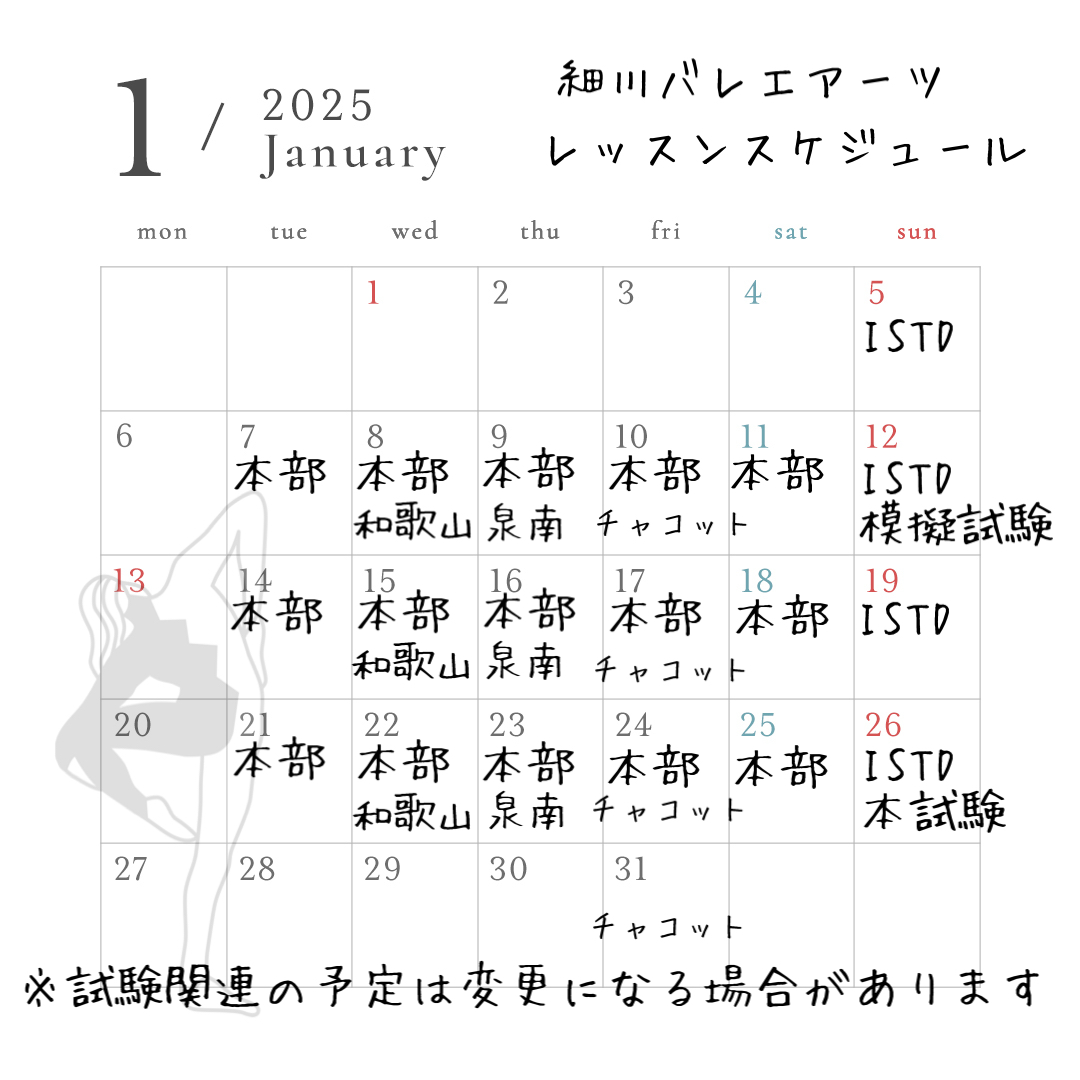 1 / 2025
January
細川バレエアーツ
レッスンスケジュール
mon tue wed thu fri sat sun
1 2 3 4 5
ISTD
6 7 8 9 10 11 12
本部 本部 本部 本部 本部 ISTD
和歌山 泉南 チャコット 模擬試験
13 14 15 16 17 18 19
本部 本部 本部 本部 本部 ISTD
和歌山 泉南 チャコット
20 21 22 23 24 25 26
本部 本部 本部 本部 本部 ISTD
和歌山 泉南 チャコット 本試験
27 28 29 30 31
チャコット
※試験関連の予定は変更になる場合があります